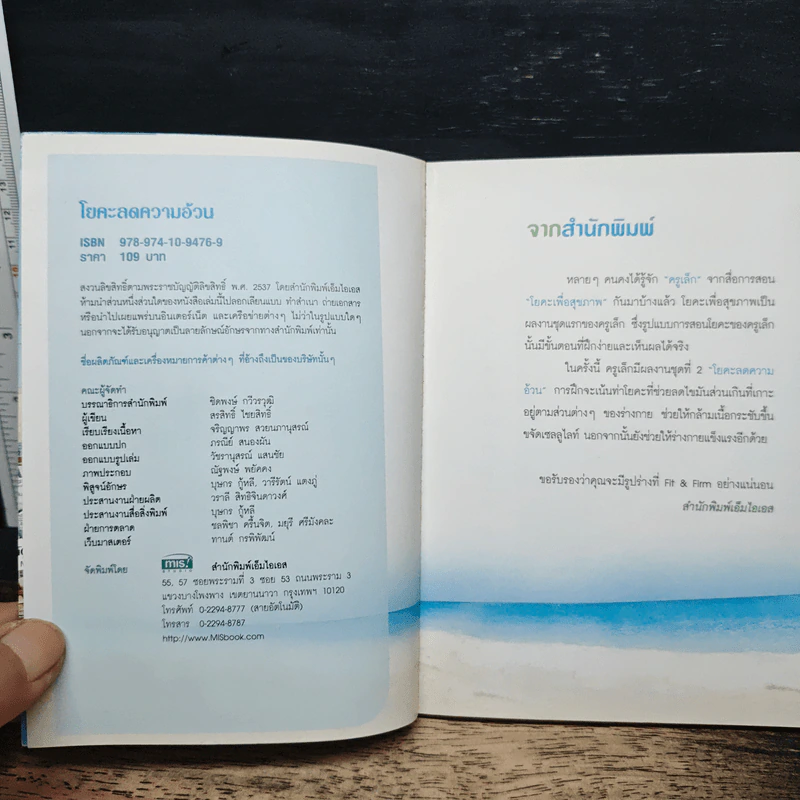 โยคะลดความอ้วน
ISBN 978-974-10-9476-9
ราคา 109 บาท
สงวนลิขสิทธิ์ตามพระราชบัญญัติลิขสิทธิ์ พ.ศ. 2537 โดยสำนักพิมพ์เอ็มไอเอส
ห้ามนำส่วนหนึ่งส่วนใดของหนังสือเล่มนี้ไปลอกเลียนแบบ ทำสำเนา ถ่ายเอกสาร
หรือนำไปเผยแพร่บนอินเตอร์เน็ต และเครือข่ายต่างๆ ไม่ว่าในรูปแบบใดๆ
นอกจากจะได้รับอนุญาตเป็นลายลักษณ์อักษรจากทางสำนักพิมพ์เท่านั้น
ชื่อผลิตภัณฑ์และเครื่องหมายการค้าต่างๆ ที่อ้างถึงเป็นของบริษัทนั้นๆ
คณะผู้จัดทำ
บรรณาธิการสำนักพิมพ์ ชิดพงษ์ กวีวรวุฒิ
ผู้เขียน สรสิทธิ์ ไชยสิทธิ์
เรียบเรียงเนื้อหา จริญญาพร สวยนภานุสรณ์
ออกแบบปก ภรณีย์ สนองผัน
ออกแบบรูปเล่ม วัชรานุสรณ์ แสนชัย
ภาพประกอบ ณัฐพงษ์ พยัคคง
พิสูจน์อักษร บุษกร กู้หลี, วารีรัตน์ แตงภู่
ประสานงานฝ่ายผลิต วราลี สิทธิจินดาวงศ์
ประสานงานสื่อสิ่งพิมพ์ บุษกร กู้หลี
ฝ่ายการตลาด ชลพิชา ครื้นจิต, มยุรี ศรีมังคละ
เว็บมาสเตอร์ ทานต์ กรพิพัฒน์
จัดพิมพ์โดย mis สำนักพิมพ์เอ็มไอเอส
55, 57 ซอยพระรามที่ 3 ซอย 53 ถนนพระราม 3
แขวงบางโพงพาง เขตยานนาวา กรุงเทพฯ 10120
โทรศัพท์ 0-2294-8777 (สายอัตโนมัติ)
โทรสาร 0-2294-8787
http://www.MISbook.com
จากสำนักพิมพ์
หลายๆ คนคงได้รู้จัก "ครูเล็ก" จากสื่อการสอน
"โยคะเพื่อสุขภาพ" กันมาบ้างแล้ว โยคะเพื่อสุขภาพเป็น
ผลงานชุดแรกของครูเล็ก ซึ่งรูปแบบการสอนโยคะของครูเล็ก
นั้นมีขั้นตอนที่ฝึกง่ายและเห็นผลได้จริง
ในครั้งนี้ ครูเล็กมีผลงานชุดที่ 2 "โยคะลดความ
อ้วน" การฝึกจะเน้นท่าโยคะที่ช่วยลดไขมันส่วนเกินที่เกาะ
อยู่ตามส่วนต่างๆ ของร่างกาย ช่วยให้กล้ามเนื้อกระชับขึ้น
ขจัดเซลลูไลท์ นอกจากนั้นยังช่วยให้ร่างกายแข็งแรงอีกด้วย
ขอรับรองว่าคุณจะมีรูปร่างที่ Fit & Firm อย่างแน่นอน
สำนักพิมพ์เอ็มไอเอส